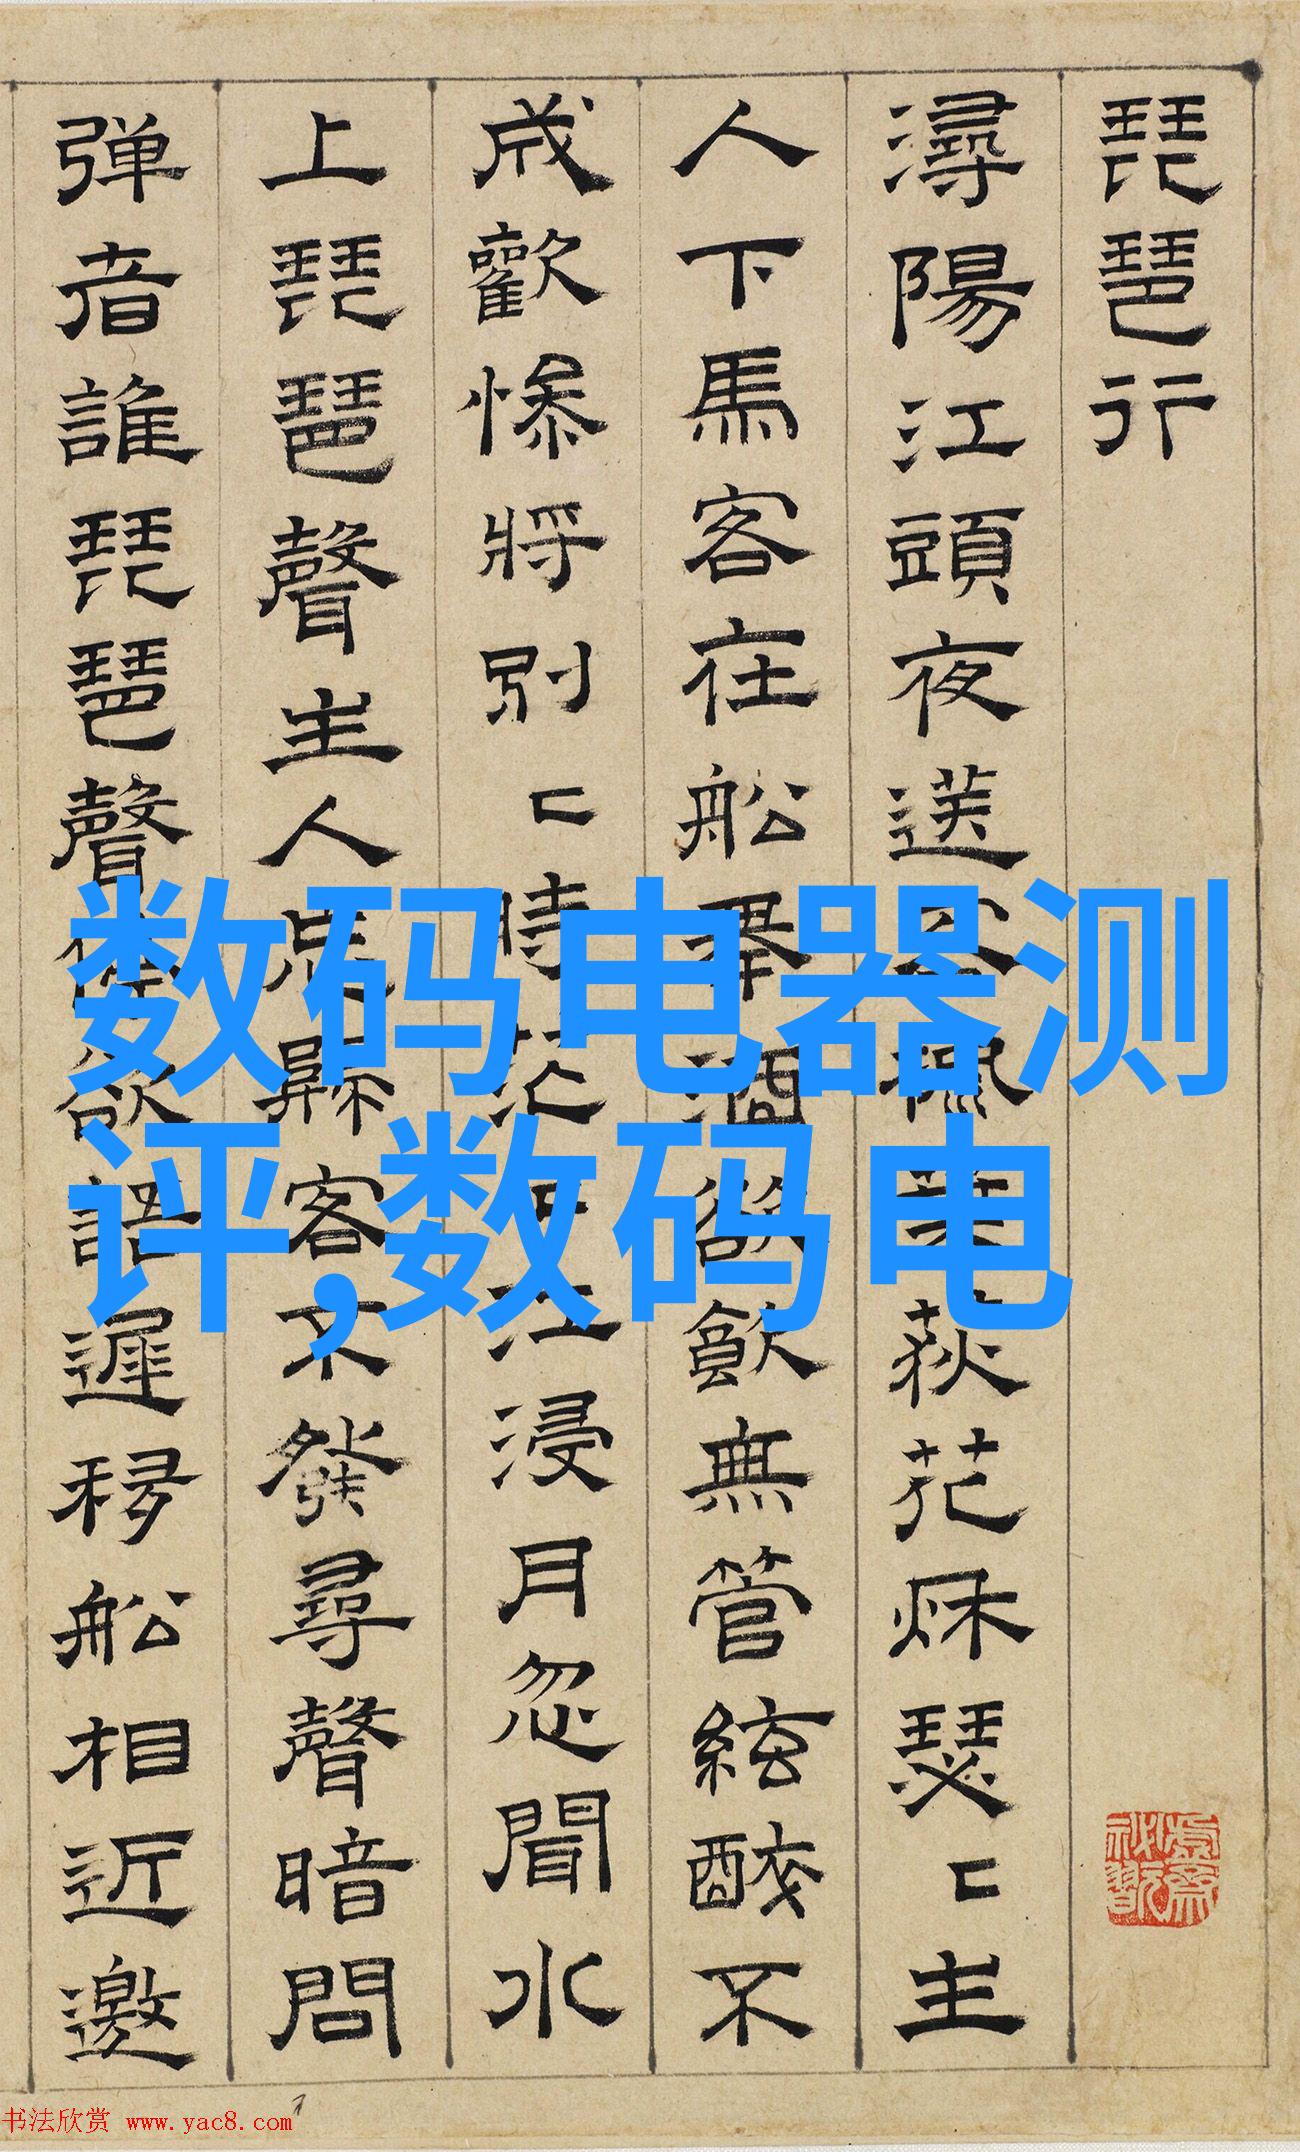 琵琶行
潯陽江頭夜送客楓葉荻花秌瑟〻主
人下馬客在船舉酒欲飲無管絃醉不
成歡慘將別〻時茫〻江浸月忽聞水
上琵琶聲主人忘歸客不發尋聲暗問
弹者誰琵琶聲停欲語遲移船相近邀
数码电器测
评,数码电
书法欣赏 www.yac8.com